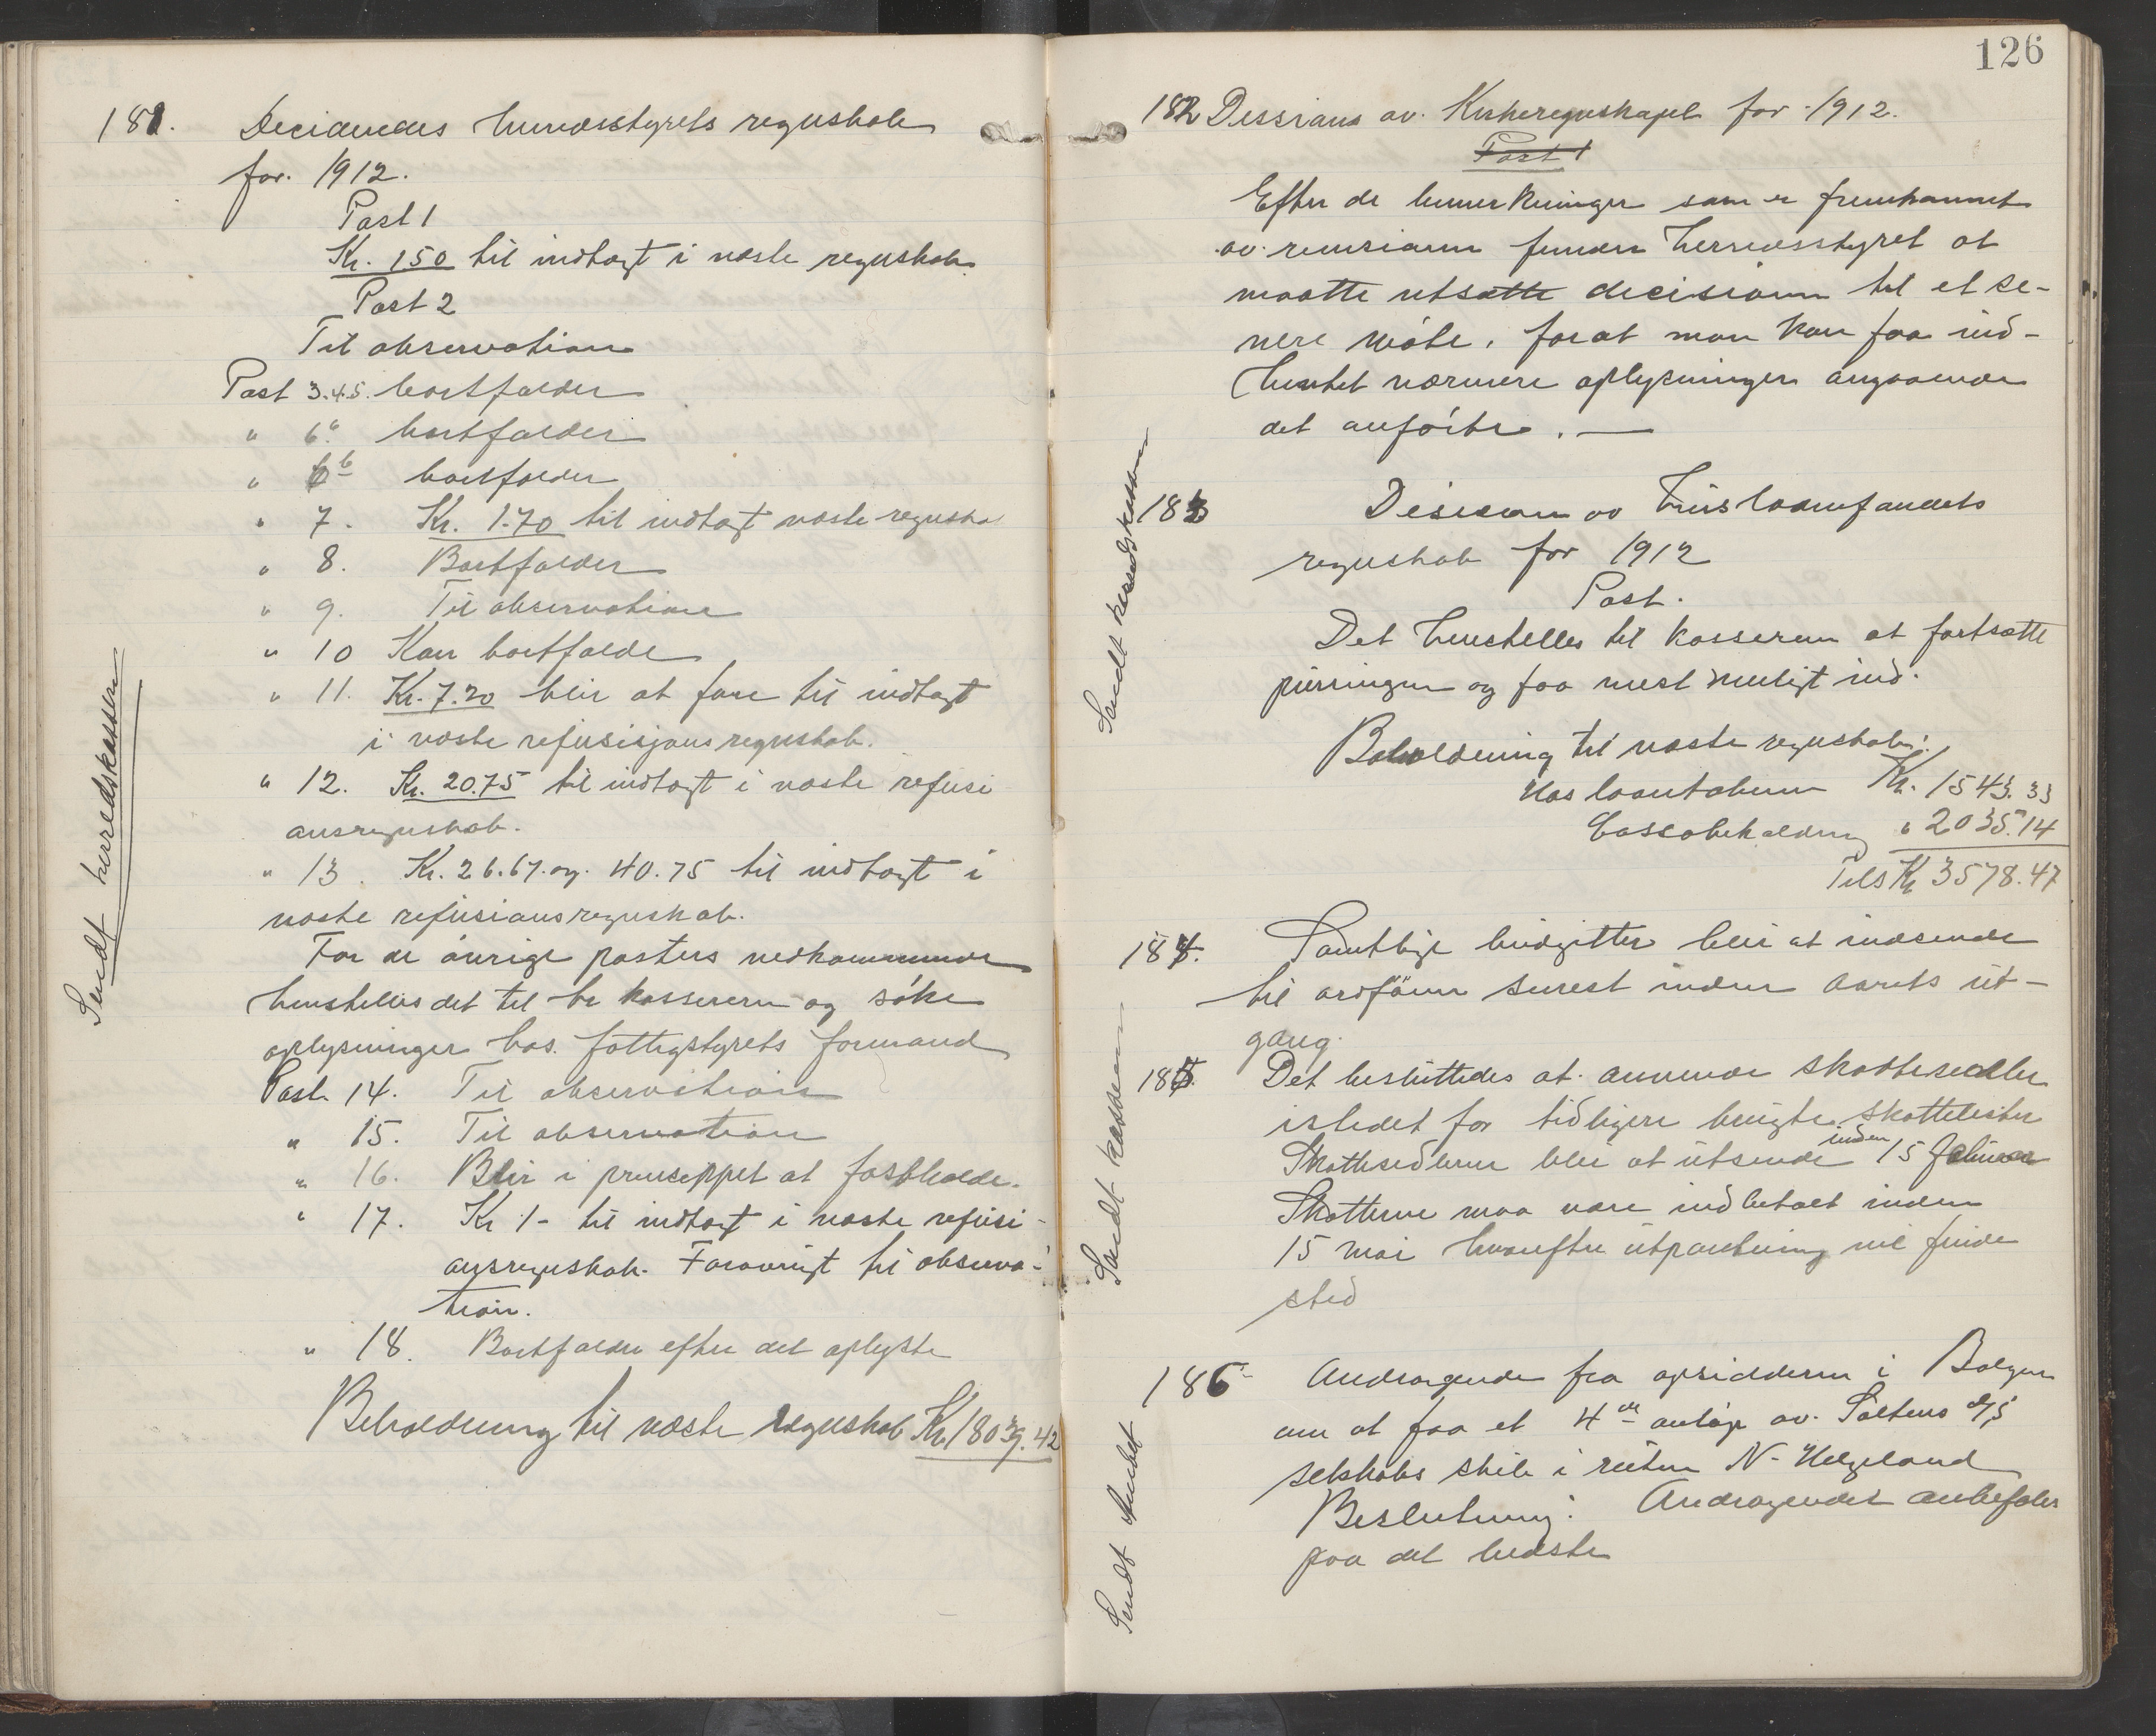 181. Decideredes herredsstyrets regnskab
for. 1912.
Post 1
Kr. 150 til indtægt i næste regnskab.
Post 2
Til observation
Post 3.4.5. bortfalder
" 6a bortfalder
" 6b bortfalder
" 7. Kr. 1.70 til indtægt næste regnska
" 8. Bortfalder
" 9. Til observation
" 10 Kan bortfalde
" 11. Kr. 7.20 blir at føre til indtægt
i næste refusisjonsregnskab.
" 12. Kr. 20.75 til indtægt i næste refusi
onsregnskab.
" 13. Kr. 26.67. og. 40.75 til indtægt i
næste refusionsregnskab.
For de øvrige posters vedkommende
henstilles det til hr kassereren og søke
oplysninger hos. fattigstyrets formand
Post. 14. Til observation
" 15. Til observation
" 16. Blir i princippet at fastholde.
" 17. Kr 1- til indtægt i næste refusi-
onsregnskab. Forøvrigt til observa-
tion.
" 18. Bortfalder efter det oplyste
Beholdning til næste regnskab Kr. 18039.42
Sendt herredskassen
126
182 Dessisions av. Kirkeregnskapet for 1912.
Post 1
Efter de bemerkninger som er fremkommet
av. revisionen finder herredsstyret at
maatte utsætte decisionen til et se-
nere møte, forat man kan faa ind-
hentet nærmere oplysninger angaaende
det anførte. —
183 Desision av Huslaanefondets
regnskab for 1912
Post.
Det henstilles til kassereren at fortsætte
purringen og faa mest muligt ind.
Beholdning til næste regnskab:
Hos laantakerne Kr. 1543.33
Cassabeholdning " 2035.14
Tils Kr 3578.47
Sendt herredskassen
184. Samtlige budgetter blir at indsende
til ordføren senest inden aarets ut-
gang.
185. Det besluttedes at anvende skattesedler
istedet for tidligere benyttede skattelister
Skattesedlerne blir at utsende inden 15 februar
Skatterne maa være indbetalt inden
15 mai hvorefter utpantning vil finde
sted
Sendt kassereren
186 Andragende fra opsidderne i Bolgen
om at faa et 4de anløp av. Saltens d/s
selskabs skib i ruten N-Helgeland
Beslutning: Andragendet anbefales
paa det bedste
Sendt Amtet